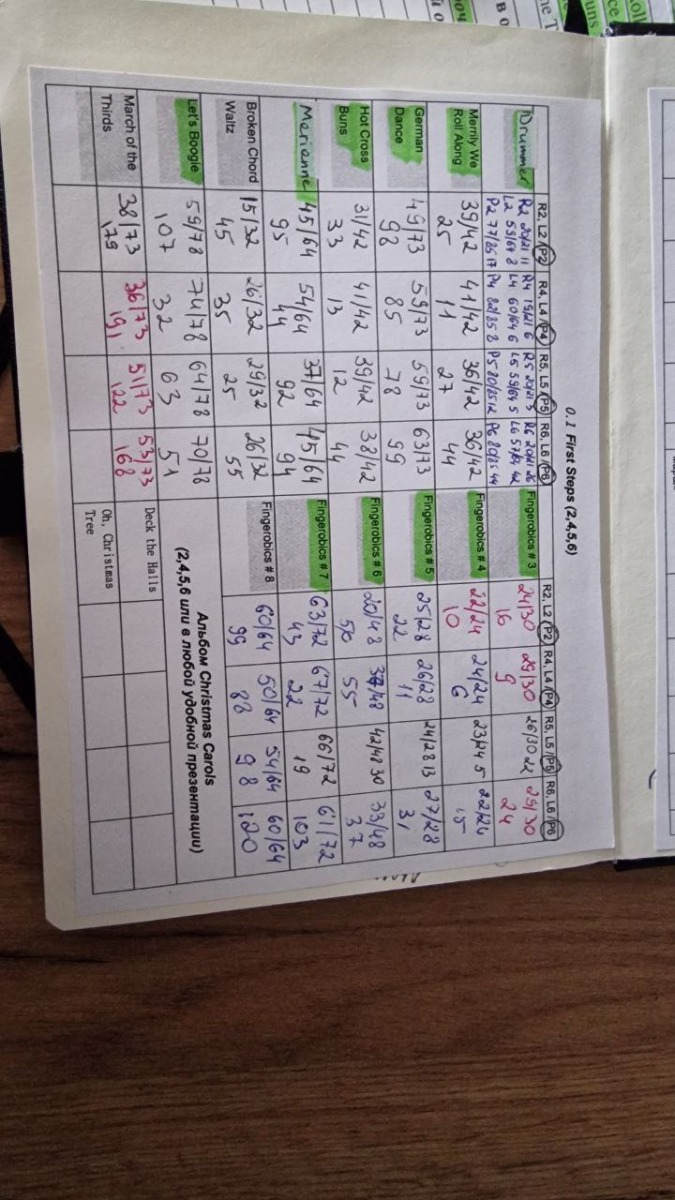 0.1 First Steps (2,4,5,6)
R2, L2 (P2) R4, L4 (P4) R5, L5 (P5) R6, L6 (P6)
Drummer
R2 20/21 11 R4 19/21 6 R5 20/21 5 R6 20/21 26
L2 59/64 8 L4 60/64 6 L5 59/64 5 L6 57/64 42
P2 77/85 17 P4 82/85 8 P5 80/85 12 P6 80/85 44
Merrily We Roll Along
39/42 41/42 36/42 36/42
25 11 27 44
German Dance
49/73 59/73 59/73 63/73
98 85 78 99
Hot Cross Buns
31/42 41/42 39/42 38/42
33 13 12 44
Marianne
45/64 54/64 37/64 45/64
95 44 92 94
Broken Chord Waltz
15/32 26/32 29/32 26/32
45 35 25 55
Let's Boogie
59/78 74/78 64/78 70/78
107 32 63 51
March of the Thirds
38/73 36/73 51/73 53/73
179 191 122 168
R2, L2 (P2) R4, L4 (P4) R5, L5 (P5) R6, L6 (P6)
Fingerobics # 3
24/30 29/30 26/30 22 29/30
16 9 24
Fingerobics # 4
22/24 24/24 23/24 5 22/24
10 6 15
Fingerobics # 5
25/28 26/28 24/28 13 27/28
22 11
Fingerobics # 6
20/48 /48 42/48 30 33/48
55 37
Fingerobics # 7
63/72 67/72 66/72 61/72
43 22 19 103
Fingerobics # 8
60/64 50/64 54/64 60/64
99 88 98 120
Альбом Christmas Carols
(2,4,5,6 или в любой удобной презентации)
Deck the Halls
Oh, Christmas Tree